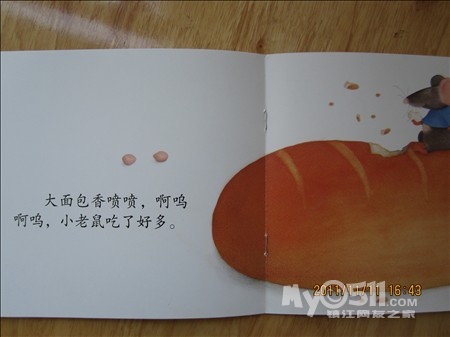 大面包香喷喷，啊呜
啊呜，小老鼠吃了好多。
2011/11/11 16:43
My0511.com
镇江网友之家